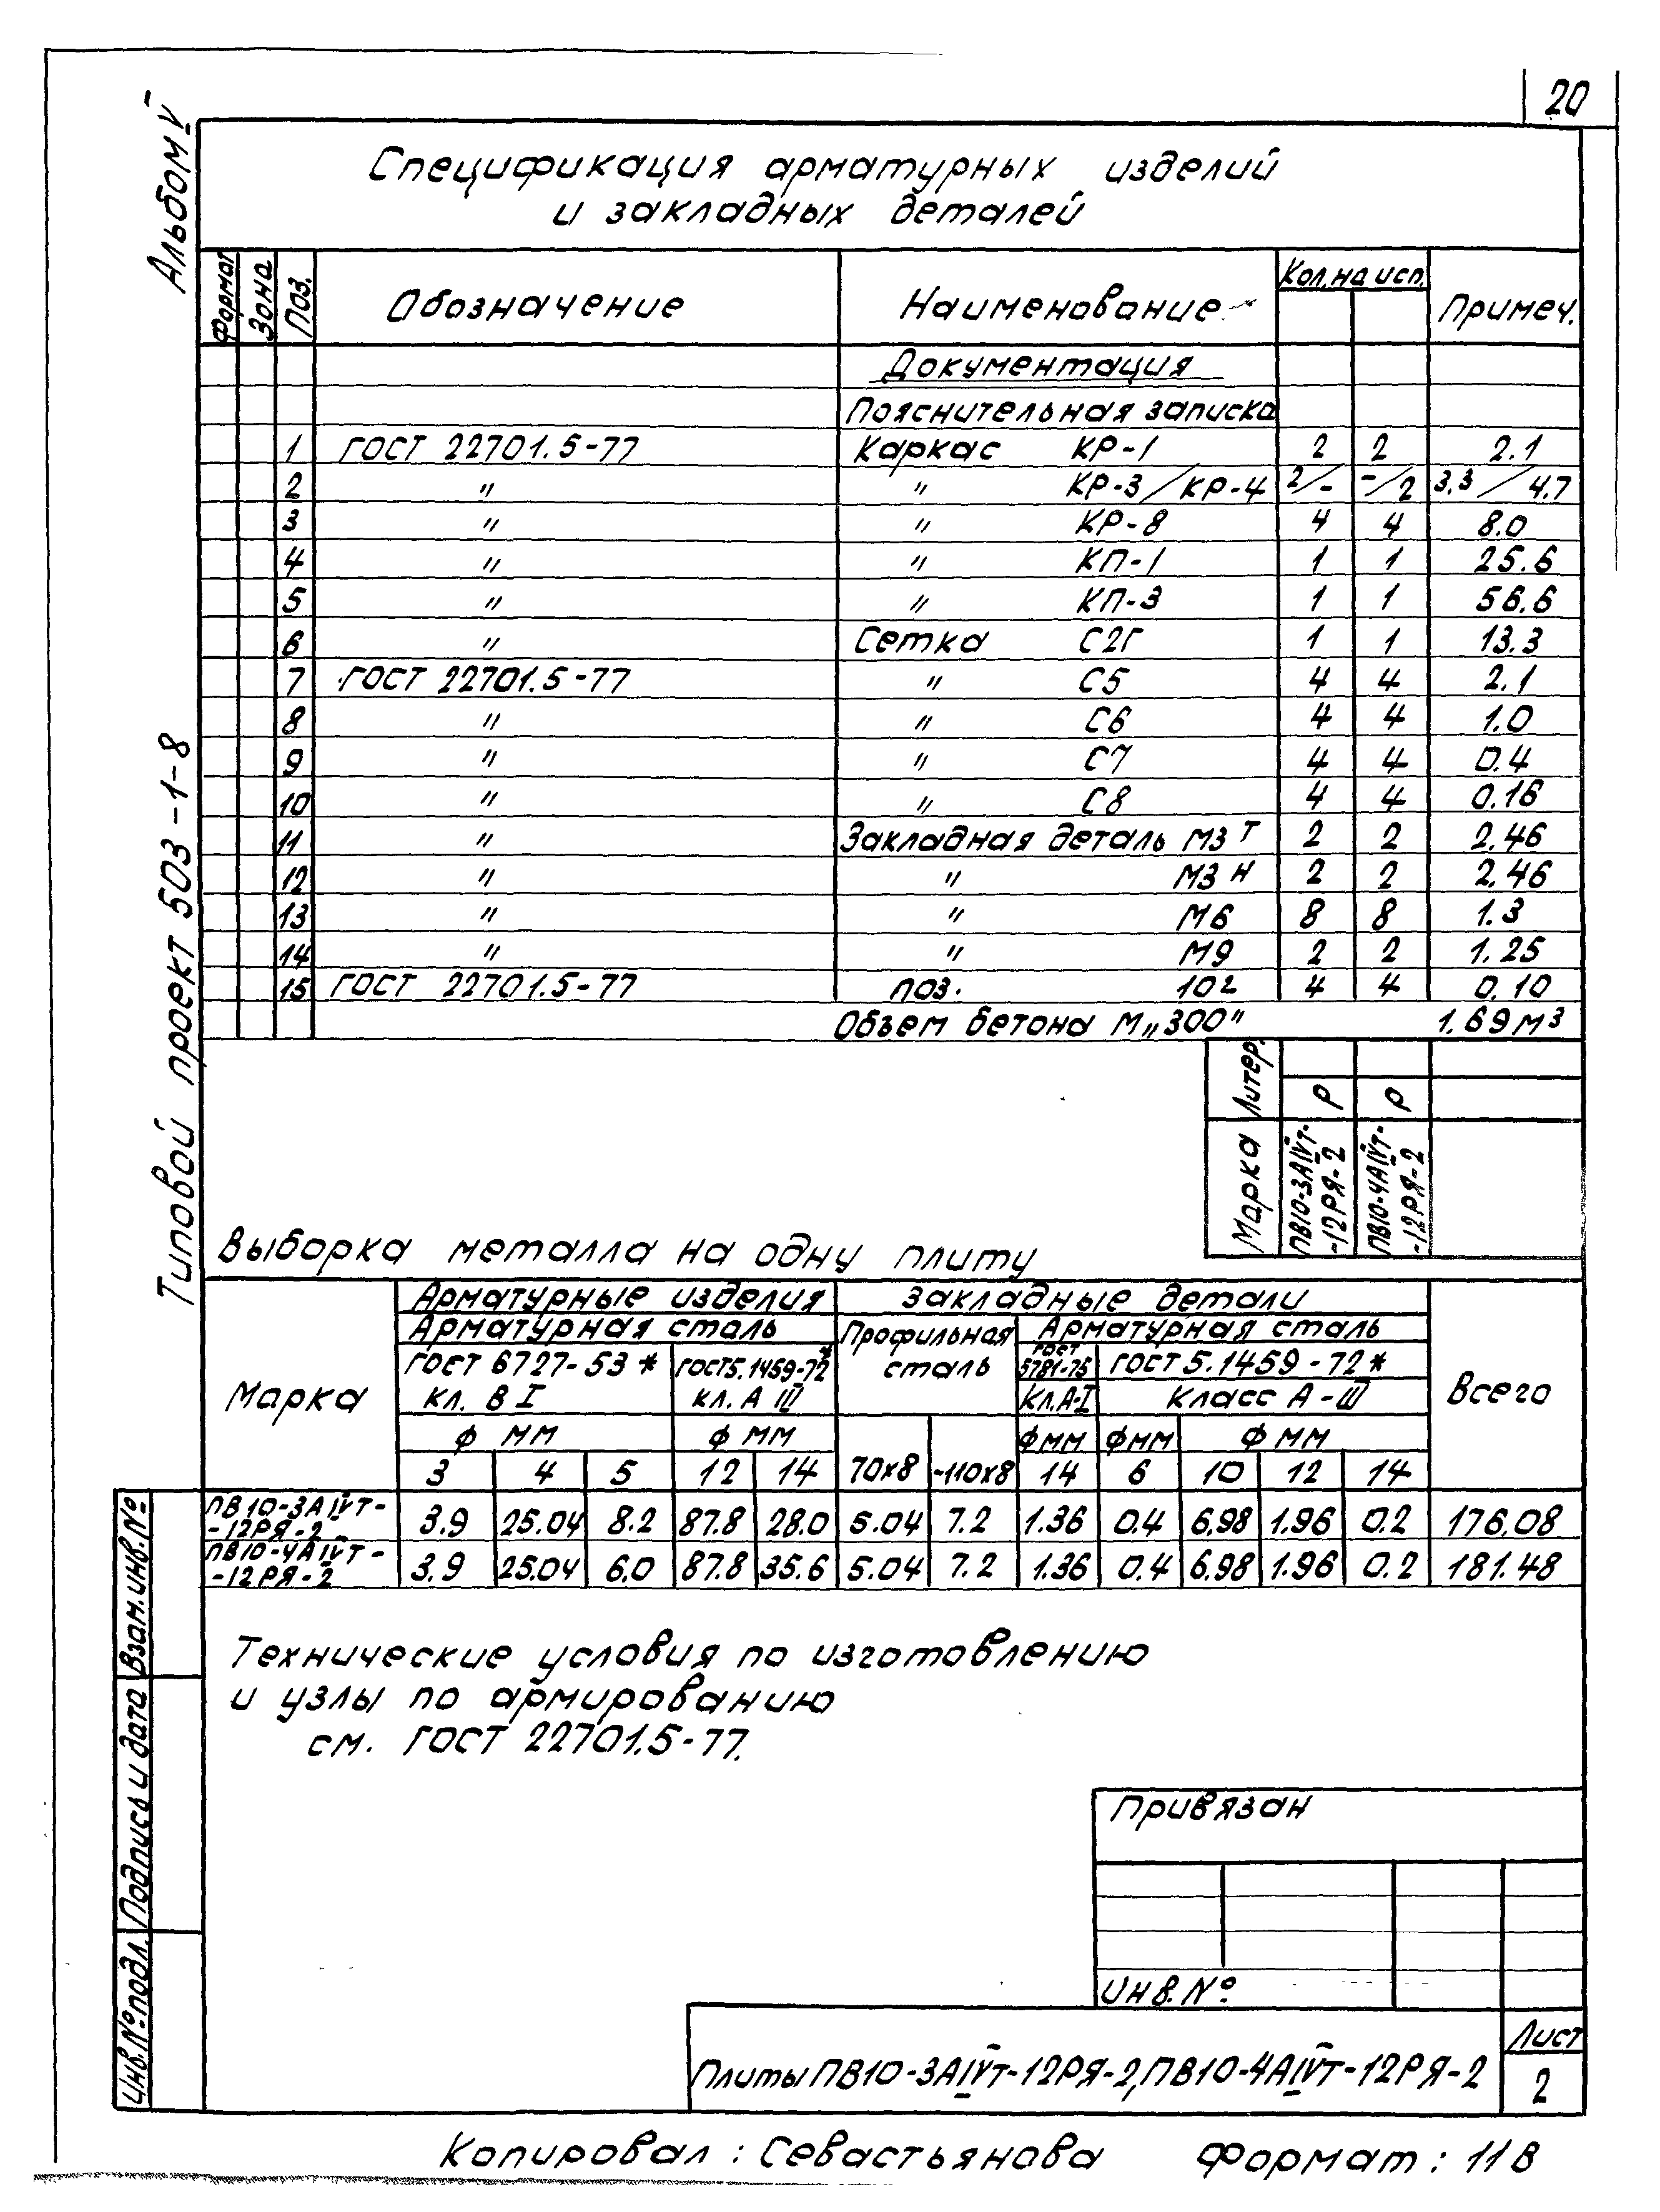 20
Альбом V
Типовой проект 503-1-8
Спецификация арматурных изделий
и закладных деталей
Формат Зона Поз. Обозначение Наименование Кол. на исп. Примеч.
Документация
Пояснительная записка
1 ГОСТ 22701.5-77 Каркас КР-1 2 2 2.1
2 " " КР-3/КР-4 2/- -/2 3.3/4.7
3 " " КР-8 4 4 8.0
4 " " КП-1 1 1 25.6
5 " " КП-3 1 1 56.6
6 " Сетка С2Г 1 1 13.3
7 ГОСТ 22701.5-77 " С5 4 4 2.1
8 " " С6 4 4 1.0
9 " " С7 4 4 0.4
10 " " С8 4 4 0.16
11 " Закладная деталь М3 Т 2 2 2.46
12 " " М3 Н 2 2 2.46
13 " " М6 8 8 1.3
14 " " М9 2 2 1.25
15 ГОСТ 22701.5-77 поз. 102 4 4 0.10
Объем бетона М„300" 1.69 м³
Литер. Р Р
Марка ПВ10-3АIVТ-12РЯ-2 ПВ10-4АIVТ-12РЯ-2
Выборка металла на одну плиту
Марка Арматурные изделия Закладные детали Всего
Арматурная сталь Профильная сталь Арматурная сталь
ГОСТ 6727-53* ГОСТ5.1459-72* ГОСТ 5781-75 ГОСТ 5.1459-72*
кл. В I кл. А III Кл.А-I Класс А-III
Ф мм Ф мм Ф мм Ф мм Ф мм
3 4 5 12 14 70х8 -110х8 14 6 10 12 14
ПВ10-3АIVТ-
-12РЯ-2 3.9 25.04 8.2 87.8 28.0 5.04 7.2 1.36 0.4 6.98 1.96 0.2 176.08
ПВ10-4АIVТ-
-12РЯ-2 3.9 25.04 6.0 87.8 35.6 5.04 7.2 1.36 0.4 6.98 1.96 0.2 181.48
Технические условия по изготовлению
и узлы по армированию
см. ГОСТ 22701.5-77.
Взам. инв. №
Подпись и дата
Инв. № подл.
Привязан
Инв. №
Плиты ПВ10-3АIVТ-12РЯ-2, ПВ10-4АIVТ-12РЯ-2
Лист
2
Копировал: Севастьянова Формат: 11В